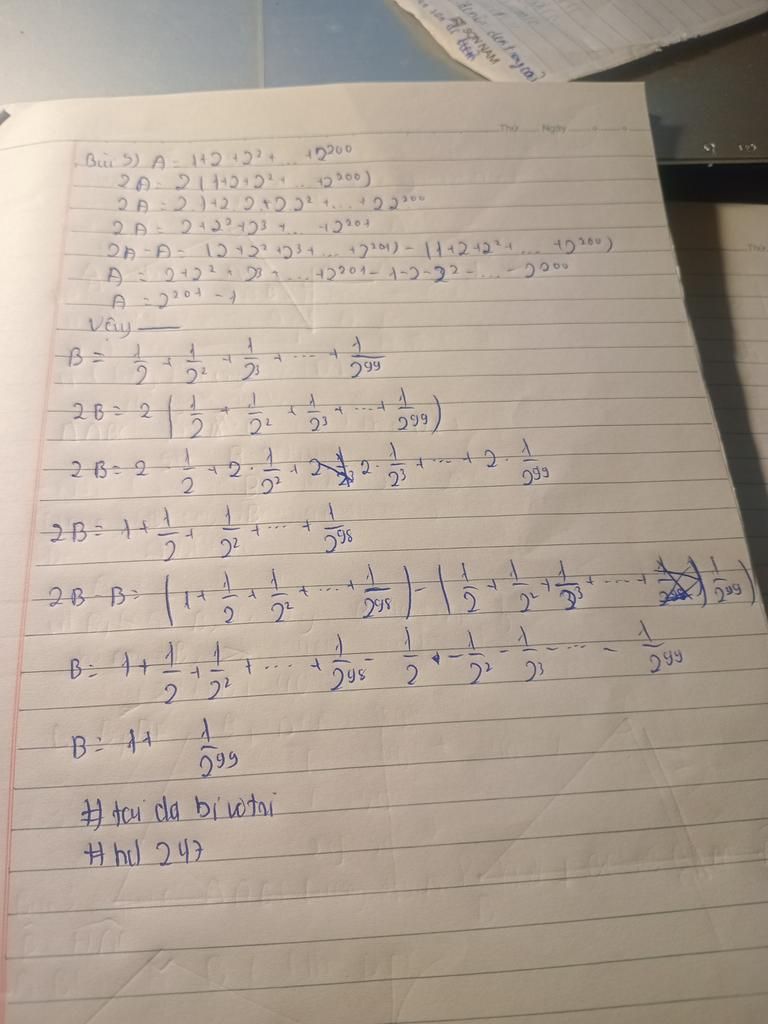 SƠN NAM
Thứ Ngày
Bài 5) A = 1+2+2²+ ... +2²⁰⁰
2A = 2(1+2+2²+ ... +2²⁰⁰)
2A = 2.1+2.2+2.2²+...+2.2²⁰⁰
2A = 2+2²+2³+ ... +2²⁰¹
2A-A = (2+2²+2³+ ... +2²⁰¹) - (1+2+2²+ ... +2²⁰⁰)
A = 2+2²+2³+ ... +2²⁰¹-1-2-2²- ... -2²⁰⁰
A = 2²⁰¹-1
Vậy
B = 1/2 + 1/2² + 1/2³ + ... + 1/2⁹⁹
2B = 2 (1/2 + 1/2² + 1/2³ + ... + 1/2⁹⁹)
2B = 2 · 1/2 + 2 · 1/2² + 2 · 1/2³ + ... + 2 · 1/2⁹⁹
2B = 1 + 1/2 + 1/2² + ... + 1/2⁹⁸
2B - B = (1 + 1/2 + 1/2² + ... + 1/2⁹⁸) - (1/2 + 1/2² + 1/2³ + ... + 1/2⁹⁹)
B = 1 + 1/2 + 1/2² + .... + 1/2⁹⁸ - 1/2 - 1/2² - 1/2³ - ... - 1/2⁹⁹
B = 1+ 1/2⁹⁹
# hd 247